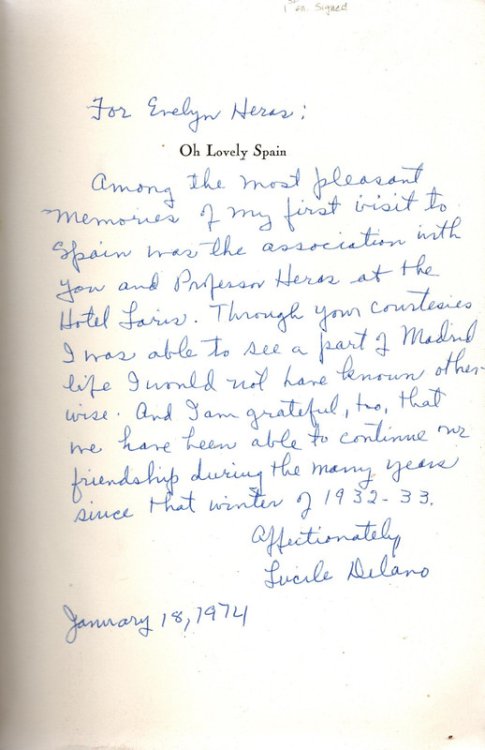 1st ed. Signed
For Evelyn Heras:
Oh Lovely Spain
Among the most pleasant
memories of my first visit to
Spain was the association with
you and Professor Heras at the
Hotel Laris. Through your courtesies
I was able to see a part of Madrid
life I would not have known other-
wise. And I am grateful, too, that
we have been able to continue our
friendship during the many years
since that winter of 1932-33.
Affectionately
Lucile Delano
January 18, 1974